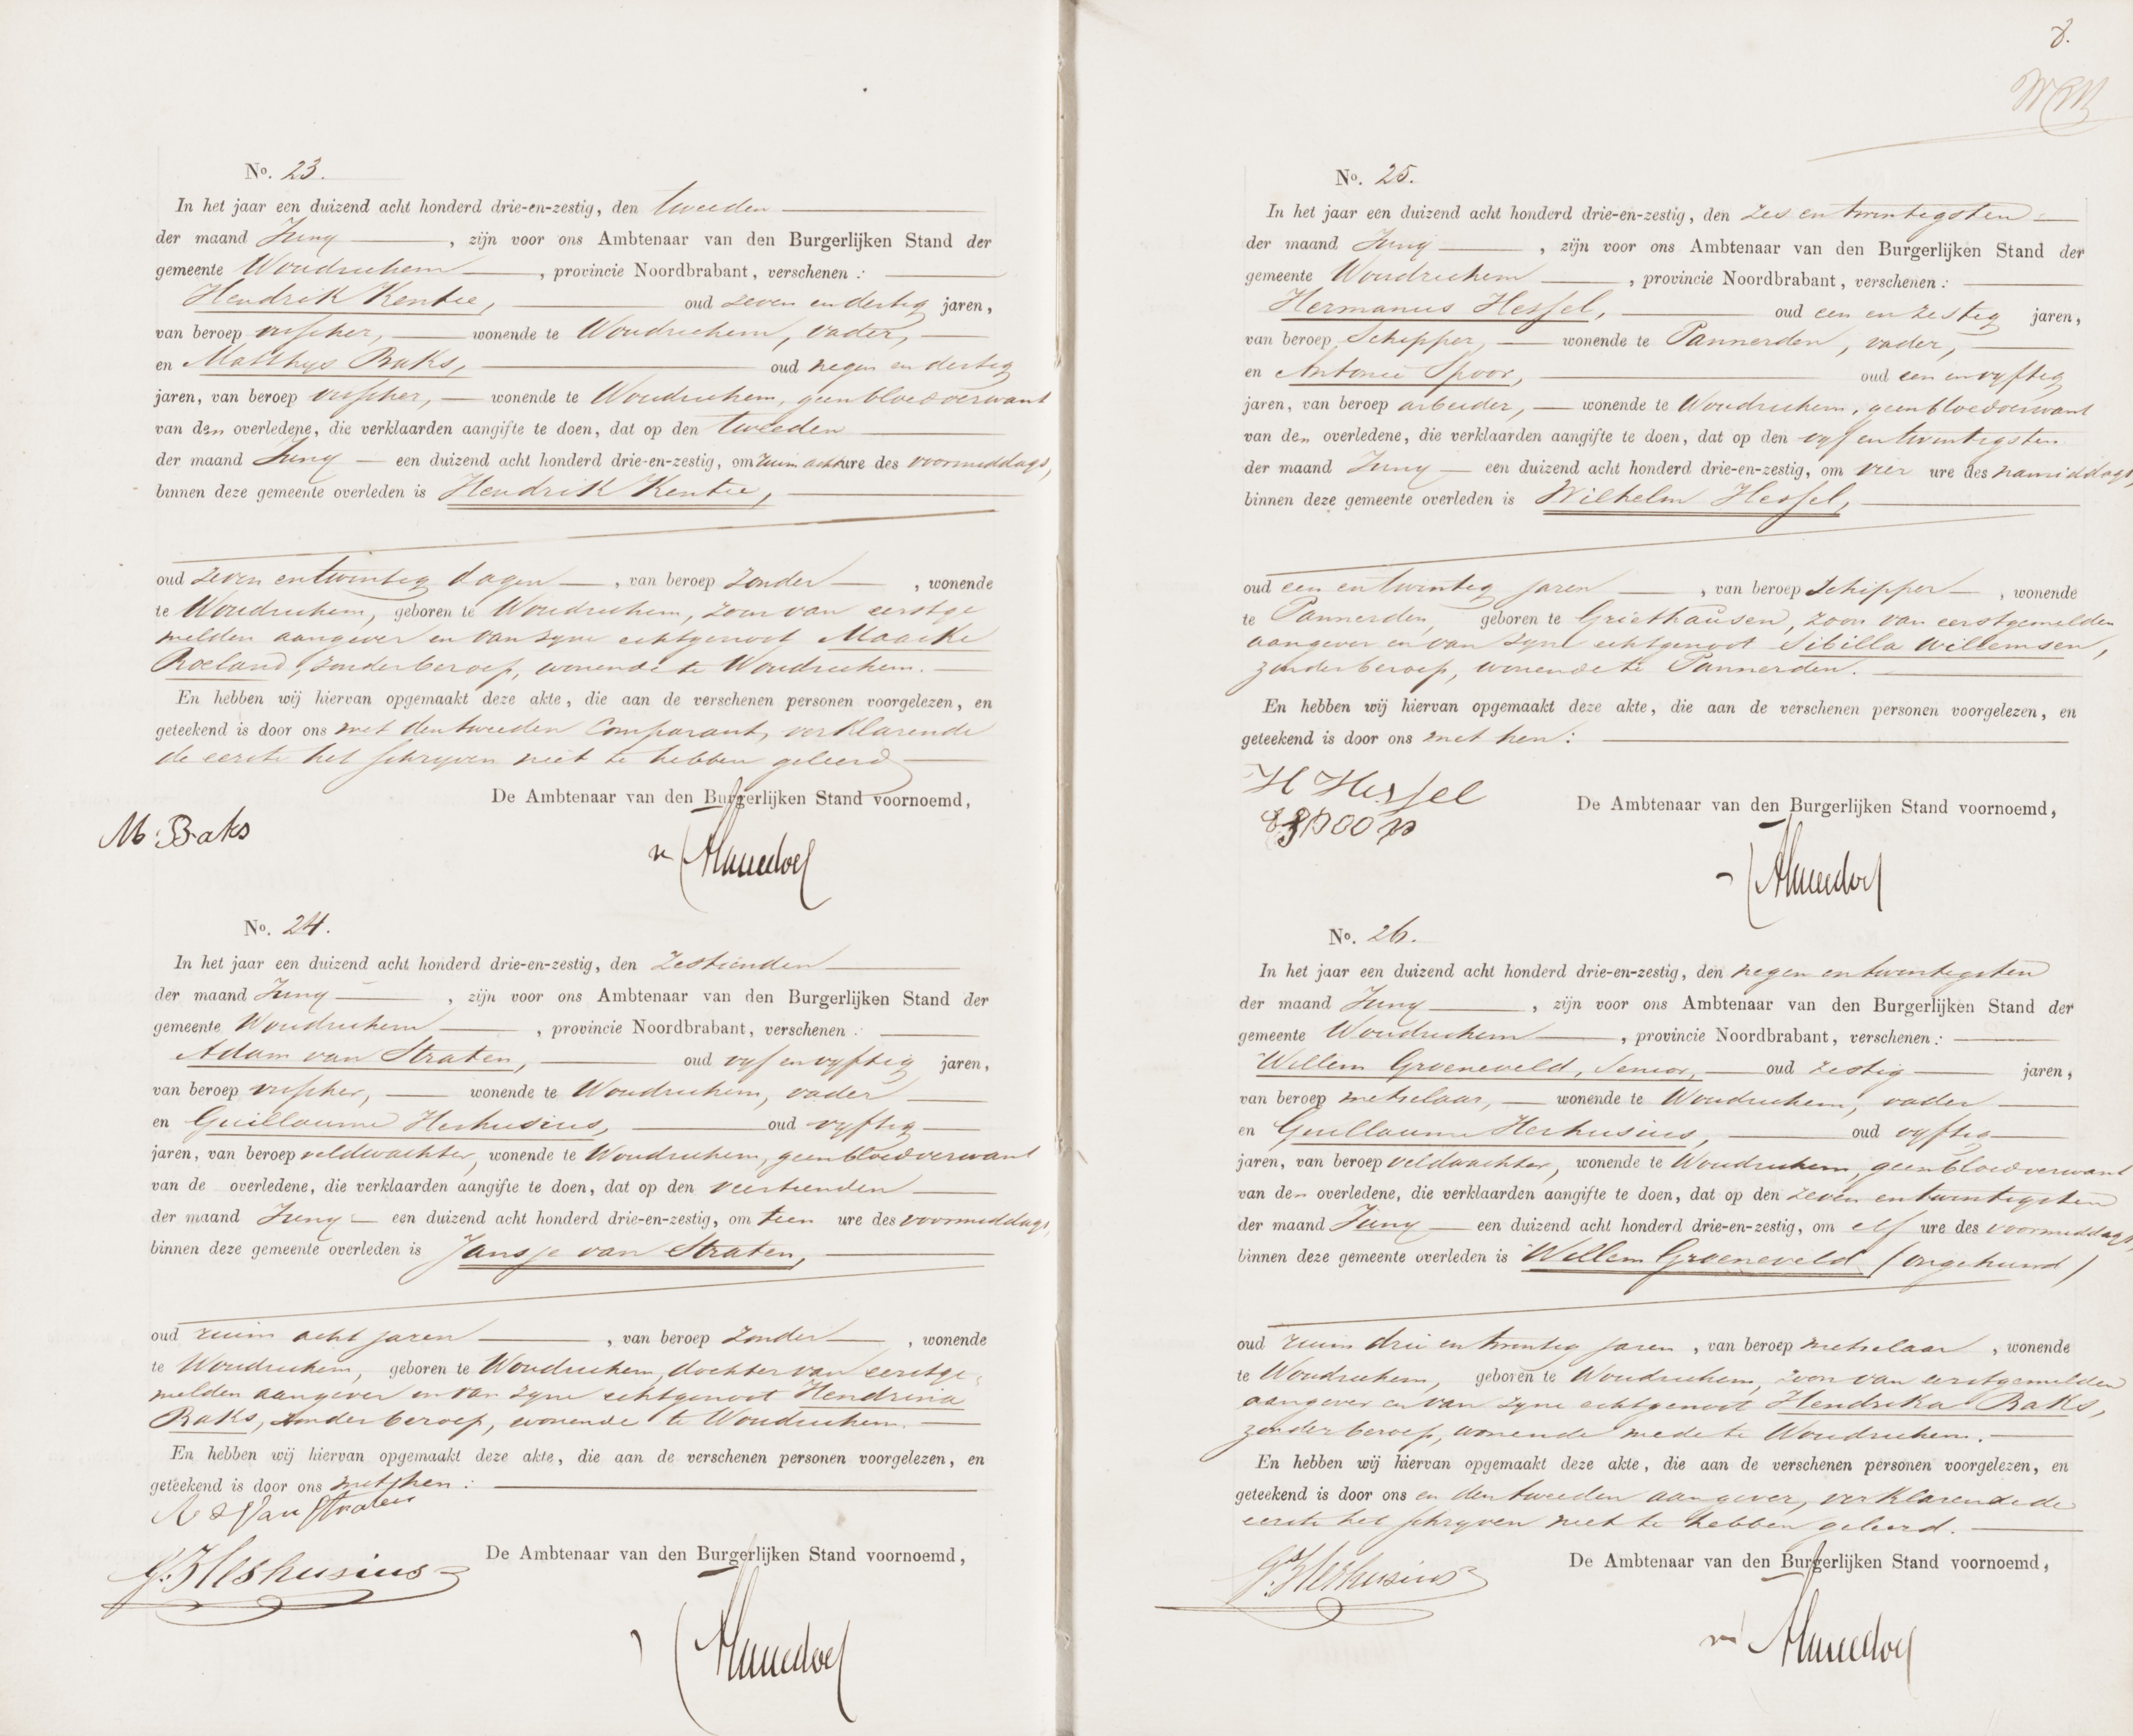 No. 23.
In het jaar een duizend acht honderd drie-en-zestig, den tweeden
der maand Juny, zijn voor ons Ambtenaar van den Burgerlijken Stand der
gemeente Woudrichem, provincie Noordbrabant, verschenen:
Hendrik Kentie, oud zeven en dertig jaren,
van beroep visscher, wonende te Woudrichem, vader,
en Matthys Baks, oud negen en dertig
jaren, van beroep visscher, wonende te Woudrichem, geen bloedverwant
van den overledene, die verklaarden aangifte te doen, dat op den tweeden
der maand Juny een duizend acht honderd drie-en-zestig, om ruim acht ure des voormiddags,
binnen deze gemeente overleden is Hendrik Kentie,
oud zeven en twintig dagen, van beroep zonder, wonende
te Woudrichem, geboren te Woudrichem, zoon van eerstge
melden aangever en van zyne echtgenoot Maaike
Roeland, zonder beroep, wonende te Woudrichem.
En hebben wij hiervan opgemaakt deze akte, die aan de verschenen personen voorgelezen, en
geteekend is door ons met den tweeden Comparant, verklarende
de eerste het schryven niet te hebben geleerd
De Ambtenaar van den Burgerlijken Stand voornoemd,
M. Baks
No. 24.
In het jaar een duizend acht honderd drie-en-zestig, den zestienden
der maand Juny, zijn voor ons Ambtenaar van den Burgerlijken Stand der
gemeente Woudrichem, provincie Noordbrabant, verschenen:
Adam van Straten, oud vyf en vyftig jaren,
van beroep visscher, wonende te Woudrichem, vader
en Guillaume Heshusius, oud vyftig
jaren, van beroep veldwachter, wonende te Woudrichem, geen bloedverwant
van de overledene, die verklaarden aangifte te doen, dat op den veertienden
der maand Juny een duizend acht honderd drie-en-zestig, om tien ure des voormiddags,
binnen deze gemeente overleden is Jansje van Straten,
oud ruim acht jaren, van beroep zonder, wonende
te Woudrichem, geboren te Woudrichem, dochter van eerstge-
melden aangever en van zyne echtgenoot Hendrina
Baks, zonder beroep, wonende te Woudrichem.
En hebben wij hiervan opgemaakt deze akte, die aan de verschenen personen voorgelezen, en
geteekend is door ons met hen:
van Straten
G. Heshusius
De Ambtenaar van den Burgerlijken Stand voornoemd,
8.
No. 25.
In het jaar een duizend acht honderd drie-en-zestig, den zes en twintigsten
der maand Juny, zijn voor ons Ambtenaar van den Burgerlijken Stand der
gemeente Woudrichem, provincie Noordbrabant, verschenen:
Hermanus Hessel, oud een en zestig jaren,
van beroep Schipper, wonende te Pannerden, vader,
en Antonie Spoor, oud een en vyftig
jaren, van beroep arbeider, wonende te Woudrichem, geen bloedverwant
van den overledene, die verklaarden aangifte te doen, dat op den vyf en twintigsten
der maand Juny een duizend acht honderd drie-en-zestig, om vier ure des namiddags,
binnen deze gemeente overleden is Wilhelm Hessel,
oud een en twintig jaren, van beroep Schipper, wonende
te Pannerden, geboren te Griethausen, zoon van eerstgemelden
aangever en van zyne echtgenoot Sibilla Willemsen,
zonder beroep, wonende te Pannerden.
En hebben wij hiervan opgemaakt deze akte, die aan de verschenen personen voorgelezen, en
geteekend is door ons met hen:
H Hessel
De Ambtenaar van den Burgerlijken Stand voornoemd,
No. 26.
In het jaar een duizend acht honderd drie-en-zestig, den negen en twintigsten
der maand Juny, zijn voor ons Ambtenaar van den Burgerlijken Stand der
gemeente Woudrichem, provincie Noordbrabant, verschenen:
Willem Groeneveld, Senior, oud zestig jaren,
van beroep metselaar, wonende te Woudrichem, vader
en Guillaume Heshusius, oud vyftig
jaren, van beroep veldwachter, wonende te Woudrichem, geen bloedverwant
van den overledene, die verklaarden aangifte te doen, dat op den zeven en twintigsten
der maand Juny een duizend acht honderd drie-en-zestig, om elf ure des voormiddags,
binnen deze gemeente overleden is Willem Groeneveld / ongehuwd /
oud ruim drie en twintig jaren, van beroep metselaar, wonende
te Woudrichem, geboren te Woudrichem, zoon van eerstgemelden
aangever en van zyne echtgenoot Hendrika Baks,
zonder beroep, wonende mede te Woudrichem.
En hebben wij hiervan opgemaakt deze akte, die aan de verschenen personen voorgelezen, en
geteekend is door ons en den tweeden aangever, verklarende de
eerste het schryven niet te hebben geleerd.
G. Heshusius
De Ambtenaar van den Burgerlijken Stand voornoemd,